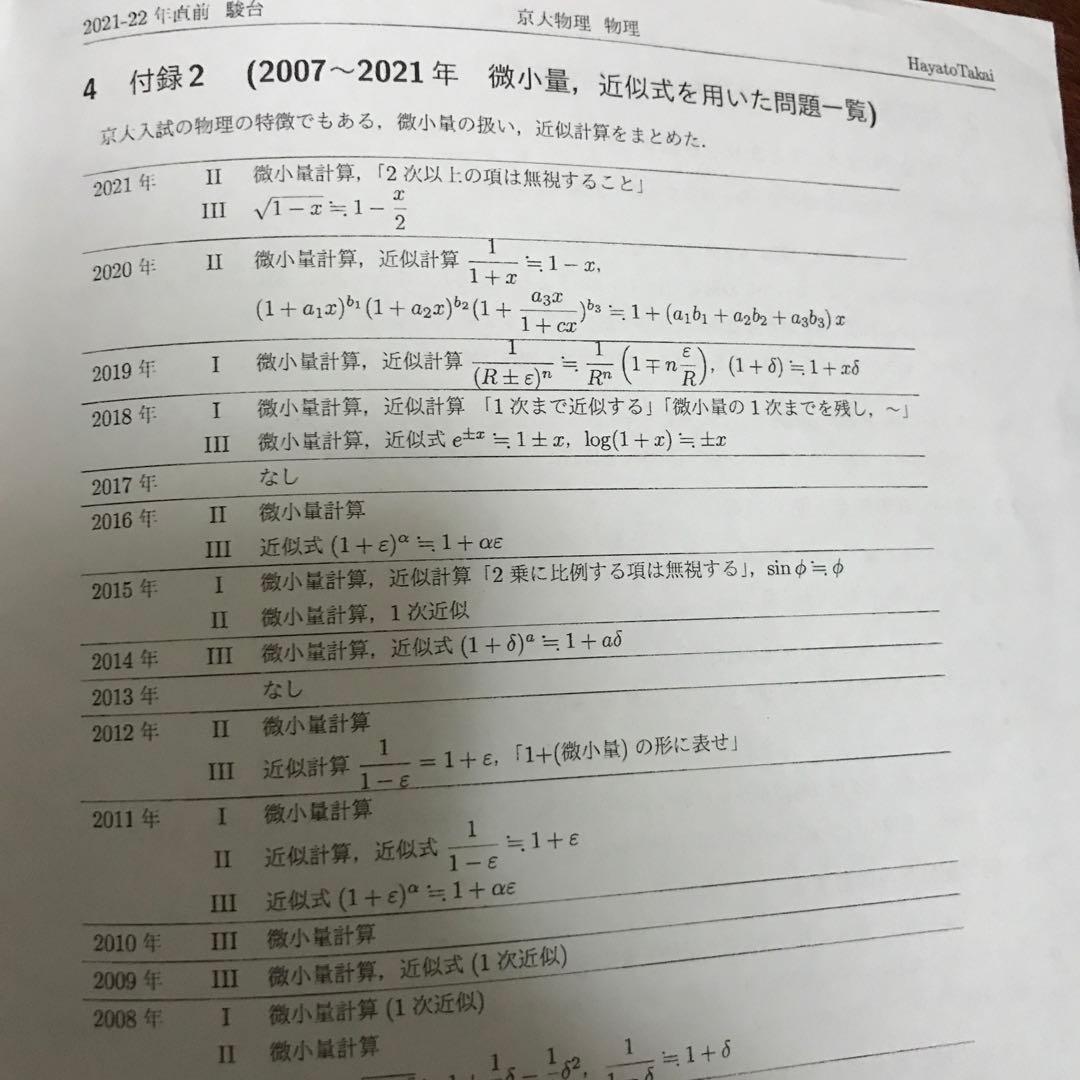 2021-22 年直前 駿台
京大物理 物理
HayatoTakai
4 付録2 (2007〜2021年 微小量，近似式を用いた問題一覧)
京大入試の物理の特徴でもある，微小量の扱い，近似計算をまとめた．
2021 年 II 微小量計算，「2 次以上の項は無視すること」
III √(1 − x) ≒ 1 − x/2
2020 年 II 微小量計算，近似計算 1/(1 + x) ≒ 1 − x,
(1 + a₁x)^b₁ (1 + a₂x)^b₂ (1 + a₃x/(1 + cx))^b₃ ≒ 1 + (a₁b₁ + a₂b₂ + a₃b₃) x
2019 年 I 微小量計算，近似計算 1/(R ± ε)ⁿ ≒ 1/Rⁿ (1 ∓ n ε/R), (1 + δ) ≒ 1 + xδ
2018 年 I 微小量計算，近似計算 「1 次まで近似する」「微小量の 1 次までを残し，〜」
III 微小量計算，近似式 e^±x ≒ 1 ± x, log(1 + x) ≒ ±x
2017 年 なし
2016 年 II 微小量計算
III 近似式 (1 + ε)^α ≒ 1 + αε
2015 年 I 微小量計算，近似計算「2 乗に比例する項は無視する」，sin φ ≒ φ
II 微小量計算，1 次近似
2014 年 III 微小量計算，近似式 (1 + δ)^a ≒ 1 + aδ
2013 年 なし
2012 年 II 微小量計算
III 近似計算 1/(1 − ε) = 1 + ε，「1+(微小量) の形に表せ」
2011 年 I 微小量計算
II 近似計算，近似式 1/(1 − ε) ≒ 1 + ε
III 近似式 (1 + ε)^α ≒ 1 + αε
2010 年 III 微小量計算
2009 年 III 微小量計算，近似式 (1 次近似)
2008 年 I 微小量計算 (1 次近似)
II 微小量計算
δ² , 1/(1 − δ) ≒ 1 + δ